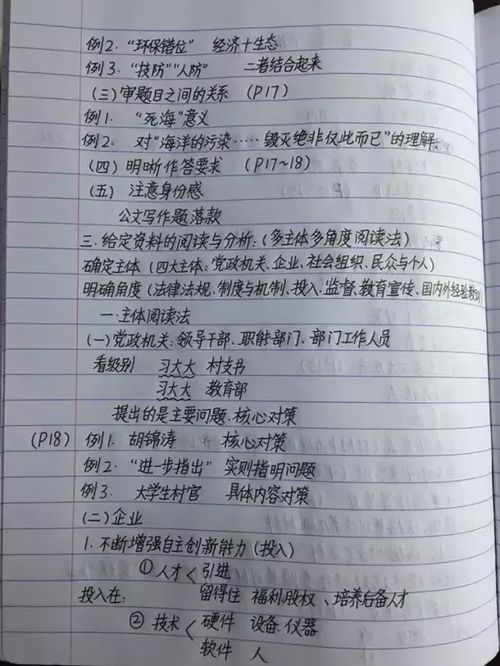 例2. “环保错位” 经济十生态
例3. “技防”“人防” 二者结合起来
(三)审题目之间的关系 (P17)
例1. “死海”意义
例2. 对“海洋的污染……毁灭绝非仅此而已”的理解
(四) 明晰作答要求 (P17~18)
(五) 注意身份感
公文写作题落款
三.给定资料的阅读与分析:(多主体多角度阅读法)
确定主体 (四大主体:党政机关、企业、社会组织、民众与个人)
明确角度(法律法规、制度与机制、投入、监督、教育宣传、国内外经验教训
一.主体阅读法
(一)党政机关:领导干部、职能部门、部门工作人员
看级别 习大大 村支书
习大大 教育部
提出的是主要问题.核心对策
(P18) 例1. 胡锦涛 核心对策
例2. “进一步指出” 实则指明问题
例3. 大学生村官 具体内容对策
(二)企业
1.不断增强自主创新能力(投入)
①人才 引进
投入在: 留得住 福利.股权、培养后备人才
② 技术 硬件 设备.仪器
软件 人